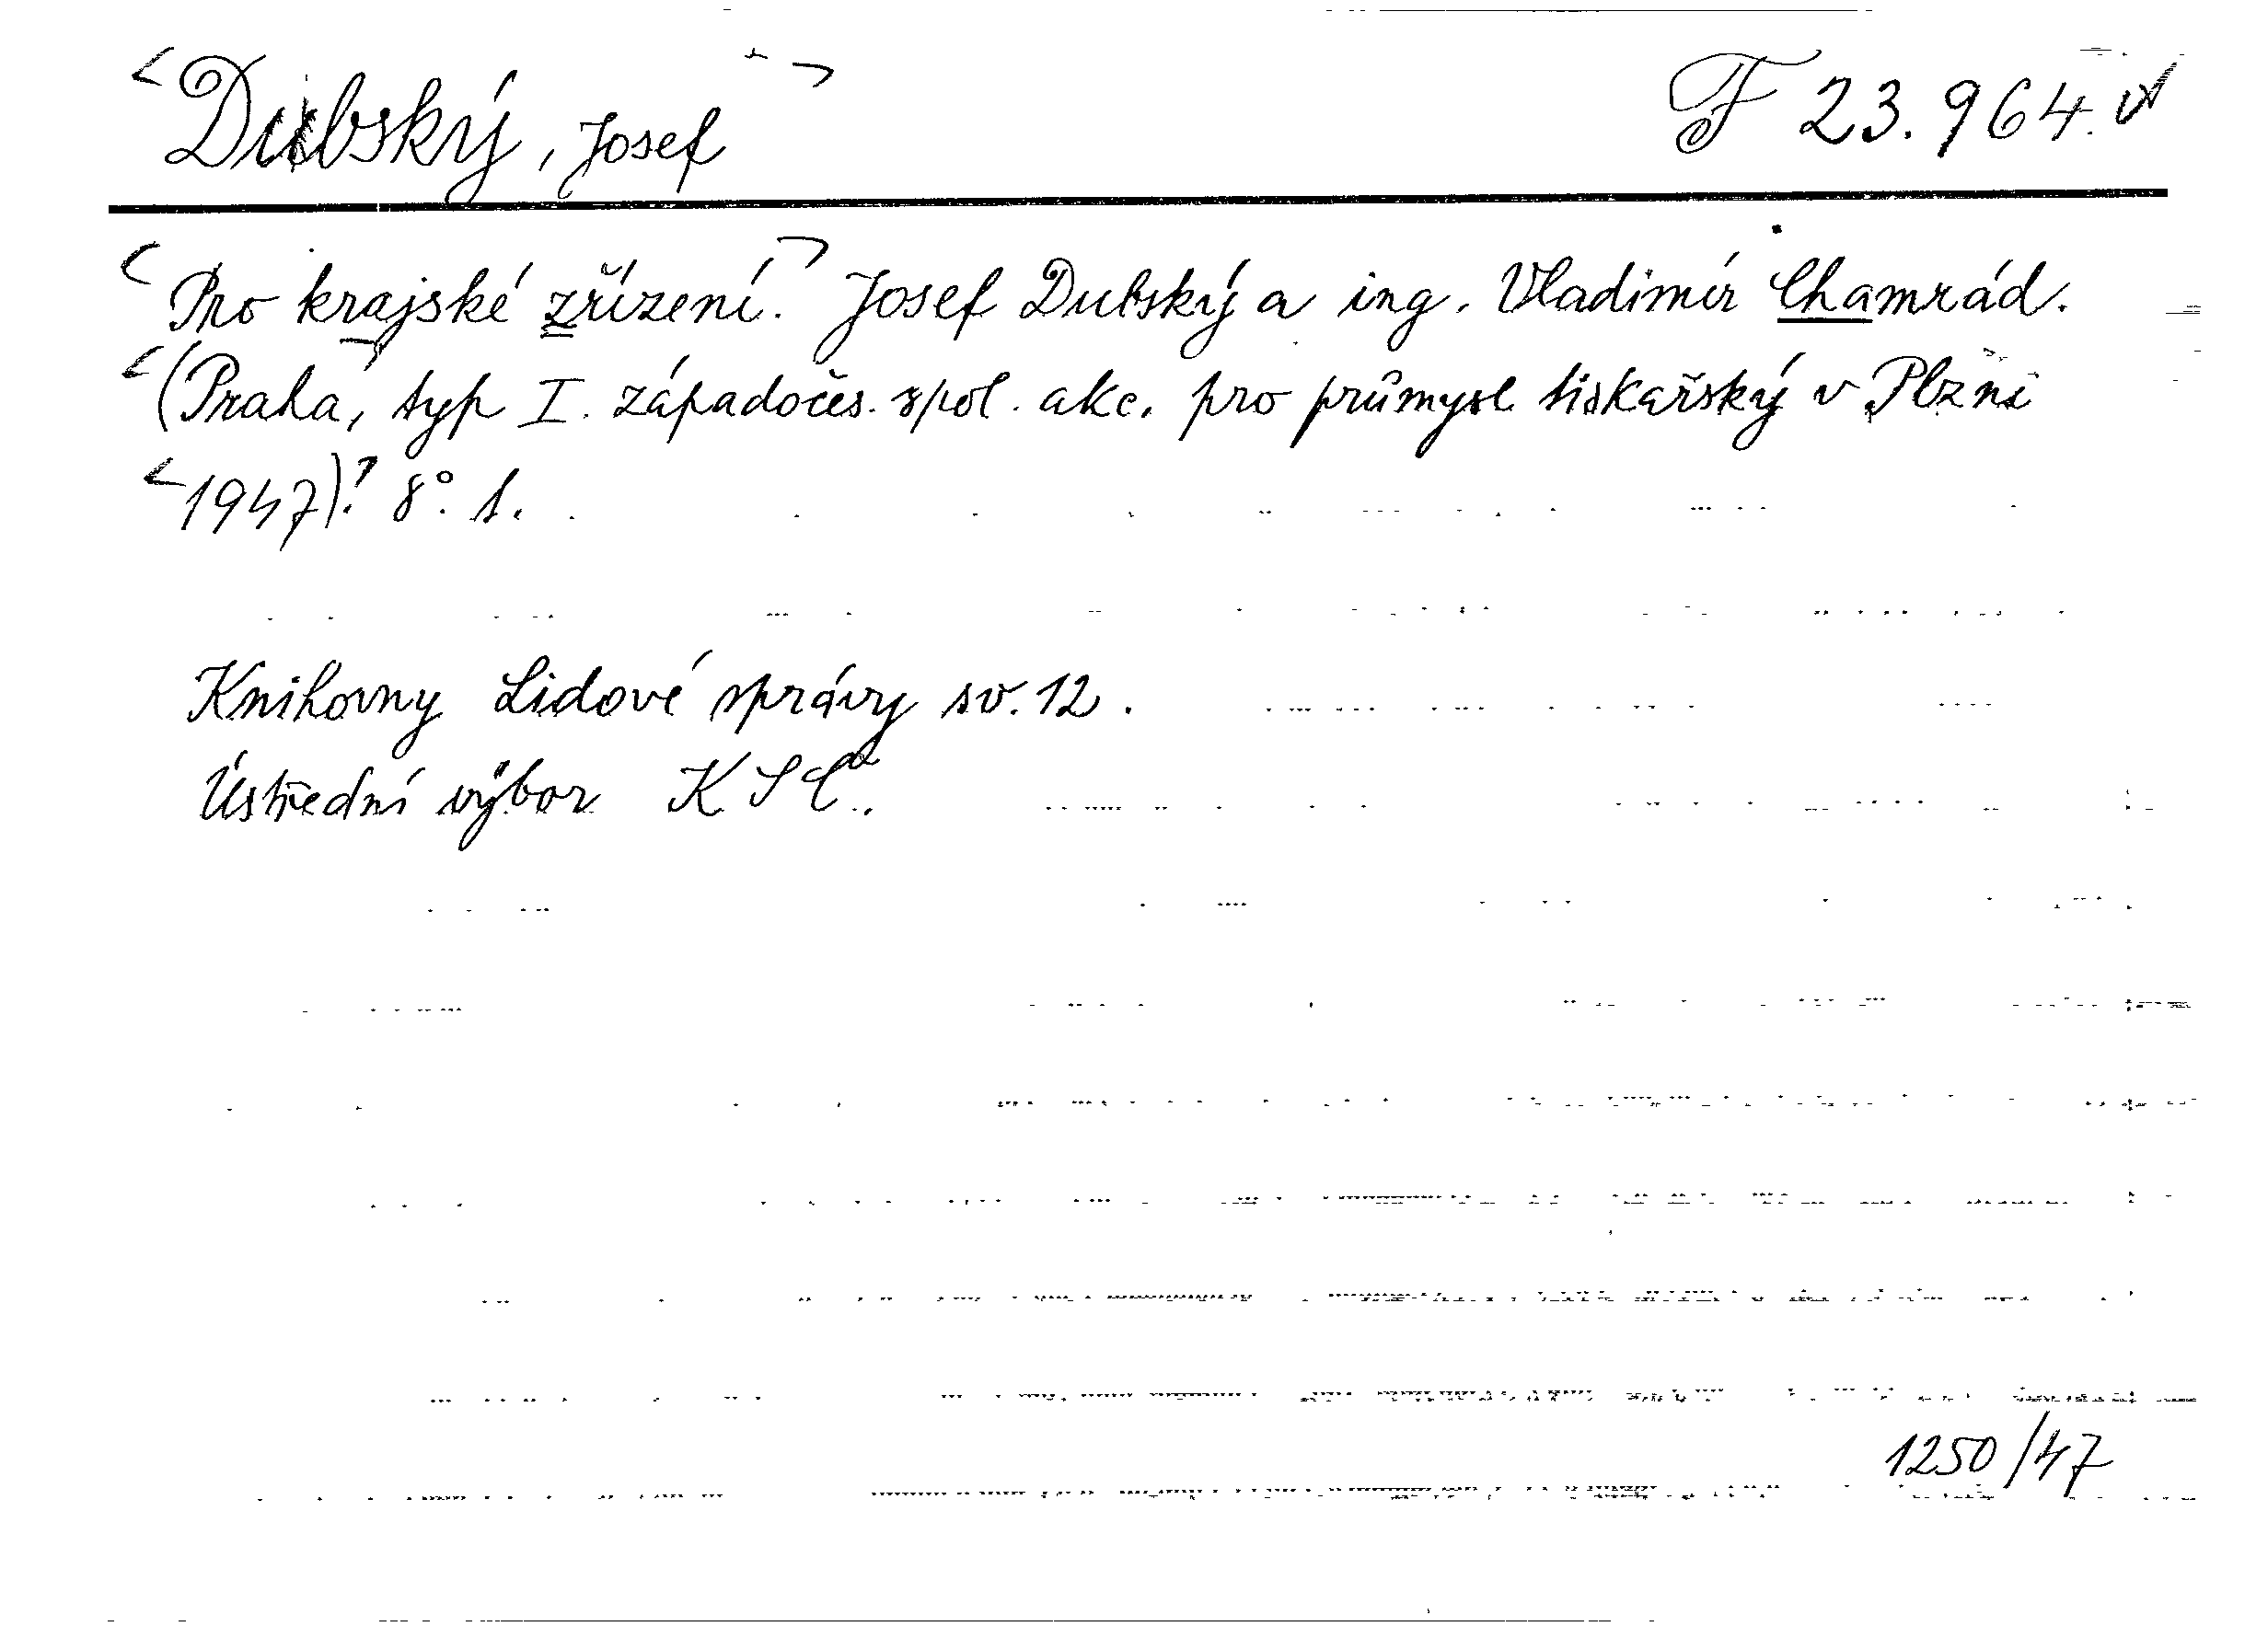 Dubský, Josef F 23.964.
Pro krajské zřízení. Josef Dubský a ing. Vladimír Chamrád.
(Praha, typ I. západočes. spol. akc. pro průmysl tiskařský v Plzni
1947). 8°. 1.
Knihovny Lidové správy sv. 12.
Ústřední výbor KSČ.
1250/47